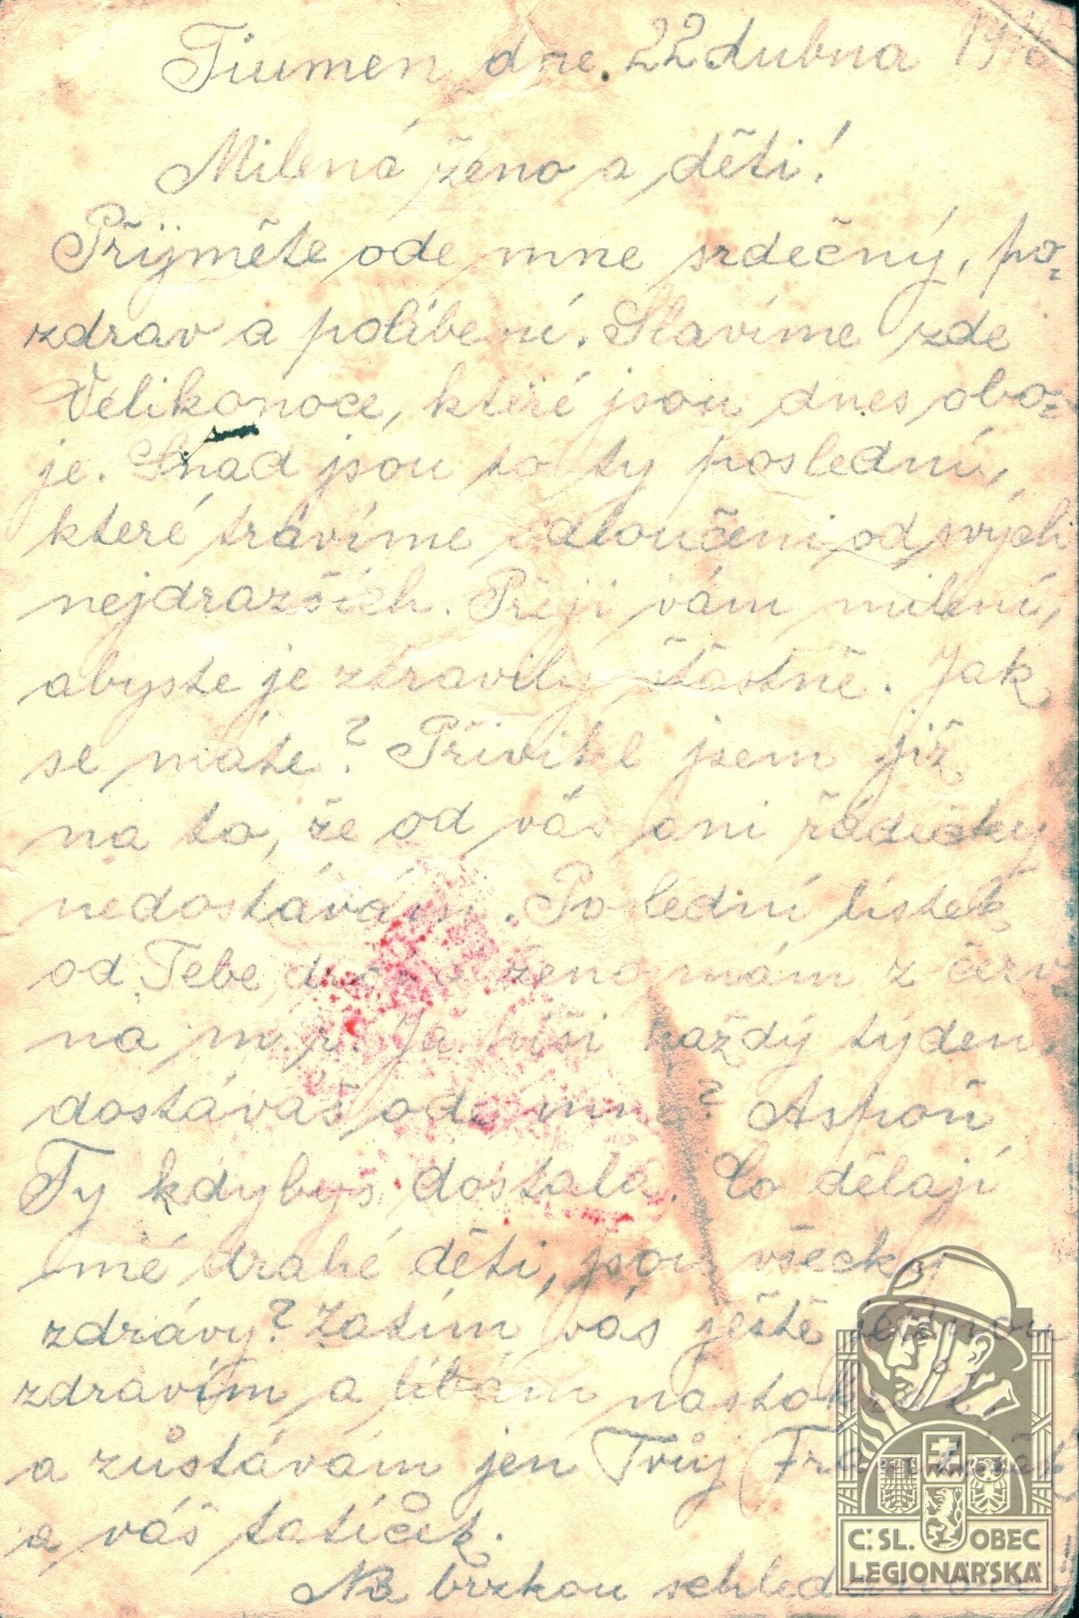 Tiumen dne. 22 dubna 1916
Milená ženo a děti!
Přijměte ode mne srdečný, po=
zdrav a políbení. Slavíme zde
Velikonoce, které jsou dnes obo=
je. Snad jsou to ty poslední,
které trávíme odloučeni od svých
nejdrazších. Přeji vám milení,
abyste je ztravily šťastně. Jak
se máte? Přivikl jsem již
na to, že od vás ani řádečky
nedostávám. Poslední lístek
od Tebe, drahá ženo mám z červ
na m. r. Já píši každý týden,
dostáváš ode mne? Aspoň
Ty kdybys dostala. Co dělají
mé drahé děti, jsou všecky
zdrávy? Zatím vás ještě jednou
zdravím a líbám nastokrát
a zůstávám jen Tvůj František
a váš tatíček.
Na brzkou schledanou
Č. SL. OBEC
LEGIONÁŘSKÁ